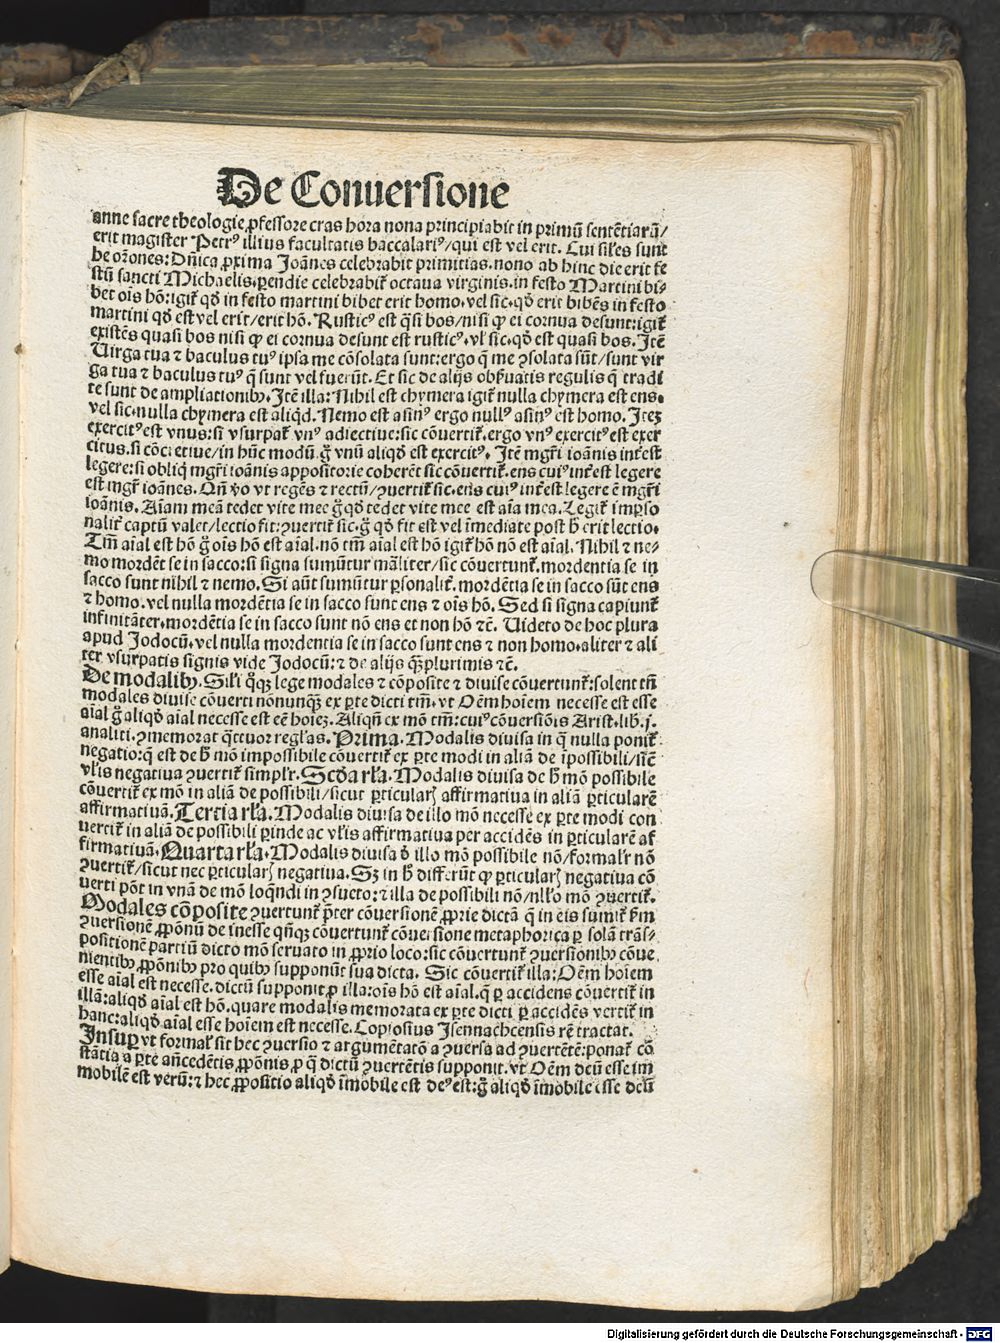 De Conuersione
anne sacre theologie ꝓfessore cras hora nona principiabit in primū sentētiarū/
erit magister Petrꝰ illius facultatis baccalariꝰ/qui est vel erit. Cui siles sunt
he orōnes: Dn̄ica ꝓxima Joānes celebrabit primitias. nono ab hinc die erit fe
stū sancti Michaelis. ꝑendie celebrabit̄ octaua virginis. in festo Martini bi⸗
bet oīs hō: igit̄ qd̄ in festo martini bibet erit homo. vel sic. qd̄ erit bibēs in festo
martini qd̄ est vel erit/erit hō. Rusticꝰ est q̄si bos/nisi ꝙ ei cornua desunt: igit̄
existēs quasi bos nisi ꝙ ei cornua desunt est rusticꝰ. vl̄ sic. qd̄ est quasi bos. Jtē
Uirga tua ⁊ baculus tuꝰ ipsa me cōsolata sunt: ergo q̄ me ꝯsolata sūt/sunt vir
ga tua ⁊ baculus tuꝰ q̄ sunt vel fuerūt. Et sic de alijs obẜuatis regulis q̄ tradi
te sunt de ampliationibꝫ. Jtē illa: Nihil est chymera igit̄ nulla chymera est ens.
vel sic. nulla chymera est aliqd. Nemo est asinꝰ ergo nullꝰ asinꝰ est homo. Jteꝫ
exercitꝰ est vnus: si vsurpat̄ vnꝰ adiectiue: sic cōuertit̄. ergo vnꝰ exercitꝰ est exer
citus. si cōcretiue/in hūc modū ḡ vnū aliqd̄ est exercitꝰ. Jtē mgr̄i ioānis int̄est
legere: si obliq̄ mgr̄i ioānis appositorie coherēt sic cōuertit̄. ens cuiꝰ int̄est legere
est mgr̄i ioānes. Qn̄ v̄o vt regēs ⁊ rectū/ꝯuertit̄ sic. ens cuiꝰ int̄est legere ē mgr̄i
ioānis. Aīam meā tedet vite mee ḡ qd̄ tedet vite mee est aīa mea. Legit̄ imꝑso
nalit̄ captū valet/lectio fit: ꝯuertit̄ sic. ḡ qd̄ fit est vel īmediate post h̄ erit lectio.
Tm̄ aīal est hō ḡ oīs hō est aīal. nō tm̄ aīal est hō igit̄ hō nō est aīal. Nihil ⁊ ne⸗
mo mordēt se in sacco: si signa sumūtur māliter/sic cōuertunt̄. mordentia se in
sacco sunt nihil ⁊ nemo. Si aūt sumūtur ꝑsonalit̄. mordētia se in sacco sūt ens
⁊ homo. vel nulla mordētia se in sacco sunt ens ⁊ oīs hō. Sed si signa capiunt̄
infinitāter. mordētia se in sacco sunt nō ens et non hō ⁊c̄. Uideto de hoc plura
apud Jodocū. vel nulla mordentia se in sacco sunt ens ⁊ non homo. aliter ⁊ ali
ter vsurpatis signis vide Jodocū: ⁊ de alijs q̄ꝫplurimis ⁊c̄.
De modalibꝫ. Sil'i q̄qꝫ lege modales ⁊ cōposite ⁊ diuise cōuertunt̄: solent tn̄
modales diuise cōuerti nōnunqꝫ ex ꝑte dicti tm̄. vt Oēm hoīem necesse est esse
aīal ḡ aliqd̄ aīal necesse est eē hoīeꝫ. Aliqn̄ ex mō tm̄: cuiꝰ cōuersiōis Arist. lib. j.
analiti. ꝯmemorat q̄ttuor regl'as. Prima. Modalis diuisa in q̄ nulla ponit̄
negatio: q̄ est de h̄ mō impossibile cōuertit̄ ex ꝑte modi in aliā de īpossibili/sic̄
vl'is negatiua ꝯuertit̄ simpl'r. Scd̄a rl'a. Modalis diuisa de h̄ mō possibile
cōuertit̄ ex mō in aliā de possibili/sicut ꝑticularꝫ affirmatiua in aliā ꝑticularē
affirmatiuā. Tertia rl'a. Modalis diuisa de illo mō necesse ex ꝑte modi con
uertit̄ in aliā de possibili ꝑinde ac vl'is affirmatiua per accidēs in ꝑticularē af
firmatiuā. Quarta rl'a. Modalis diuisa d̄ illo mō possibile nō/formal'r nō
ꝯuertit̄/sicut nec ꝑticularꝫ negatiua. Sꝫ in h̄ differūt ꝙ ꝑticularꝫ negatiua cō
uerti pōt in vnā de mō loq̄ndi in ꝯsueto: ⁊ illa de possibili nō/nll'o mō ꝯuertit̄.
Modales cōposite ꝯuertunt̄ p̄ter cōuersionē ꝓprie dictā q̄ in eis sumit̄ ẜm
ꝯuersionē ꝓpōnū de inesse qn̄qꝫ cōuertunt̄ cōuersione metaphorica ꝑ solā trās⸗
positionē partiū dicto mō seruato in ꝓprio loco: sic cōuertunt̄ ꝯuersionibꝫ cōue
nientibꝫ ꝓpōnibꝫ pro quibꝫ supponūt sua dicta. Sic cōuertit̄ illa: Oēm hoīem
esse aīal est necesse. dictū supponit ꝓ illa: oīs hō est aīal. q̄ ꝑ accidens cōuertit̄ in
illā: aliqd̄ aīal est hō. quare modalis memorata ex ꝑte dicti ꝑ accidēs vertit̄ in
hanc: aliqd̄ aīal esse hoīem est necesse. Copiosius Jsennachcensis rē tractat.
Jnsuꝑ vt formal' sit hec ꝯuersio ⁊ argumētatō a ꝯuersa ad ꝯuertētē: ponat̄ cō
stātia a ꝑte an̄cedētis ꝓpōnis ꝓ q̄ dictū ꝯuertētis supponit. vt Oēm deū esse im
mobilē est verū: ⁊ hec ꝓpositio aliqd̄ īmobile est deꝰ est: ḡ aliqd̄ īmobile esse deū
Digitalisierung gefördert durch die Deutsche Forschungsgemeinschaft - DFG